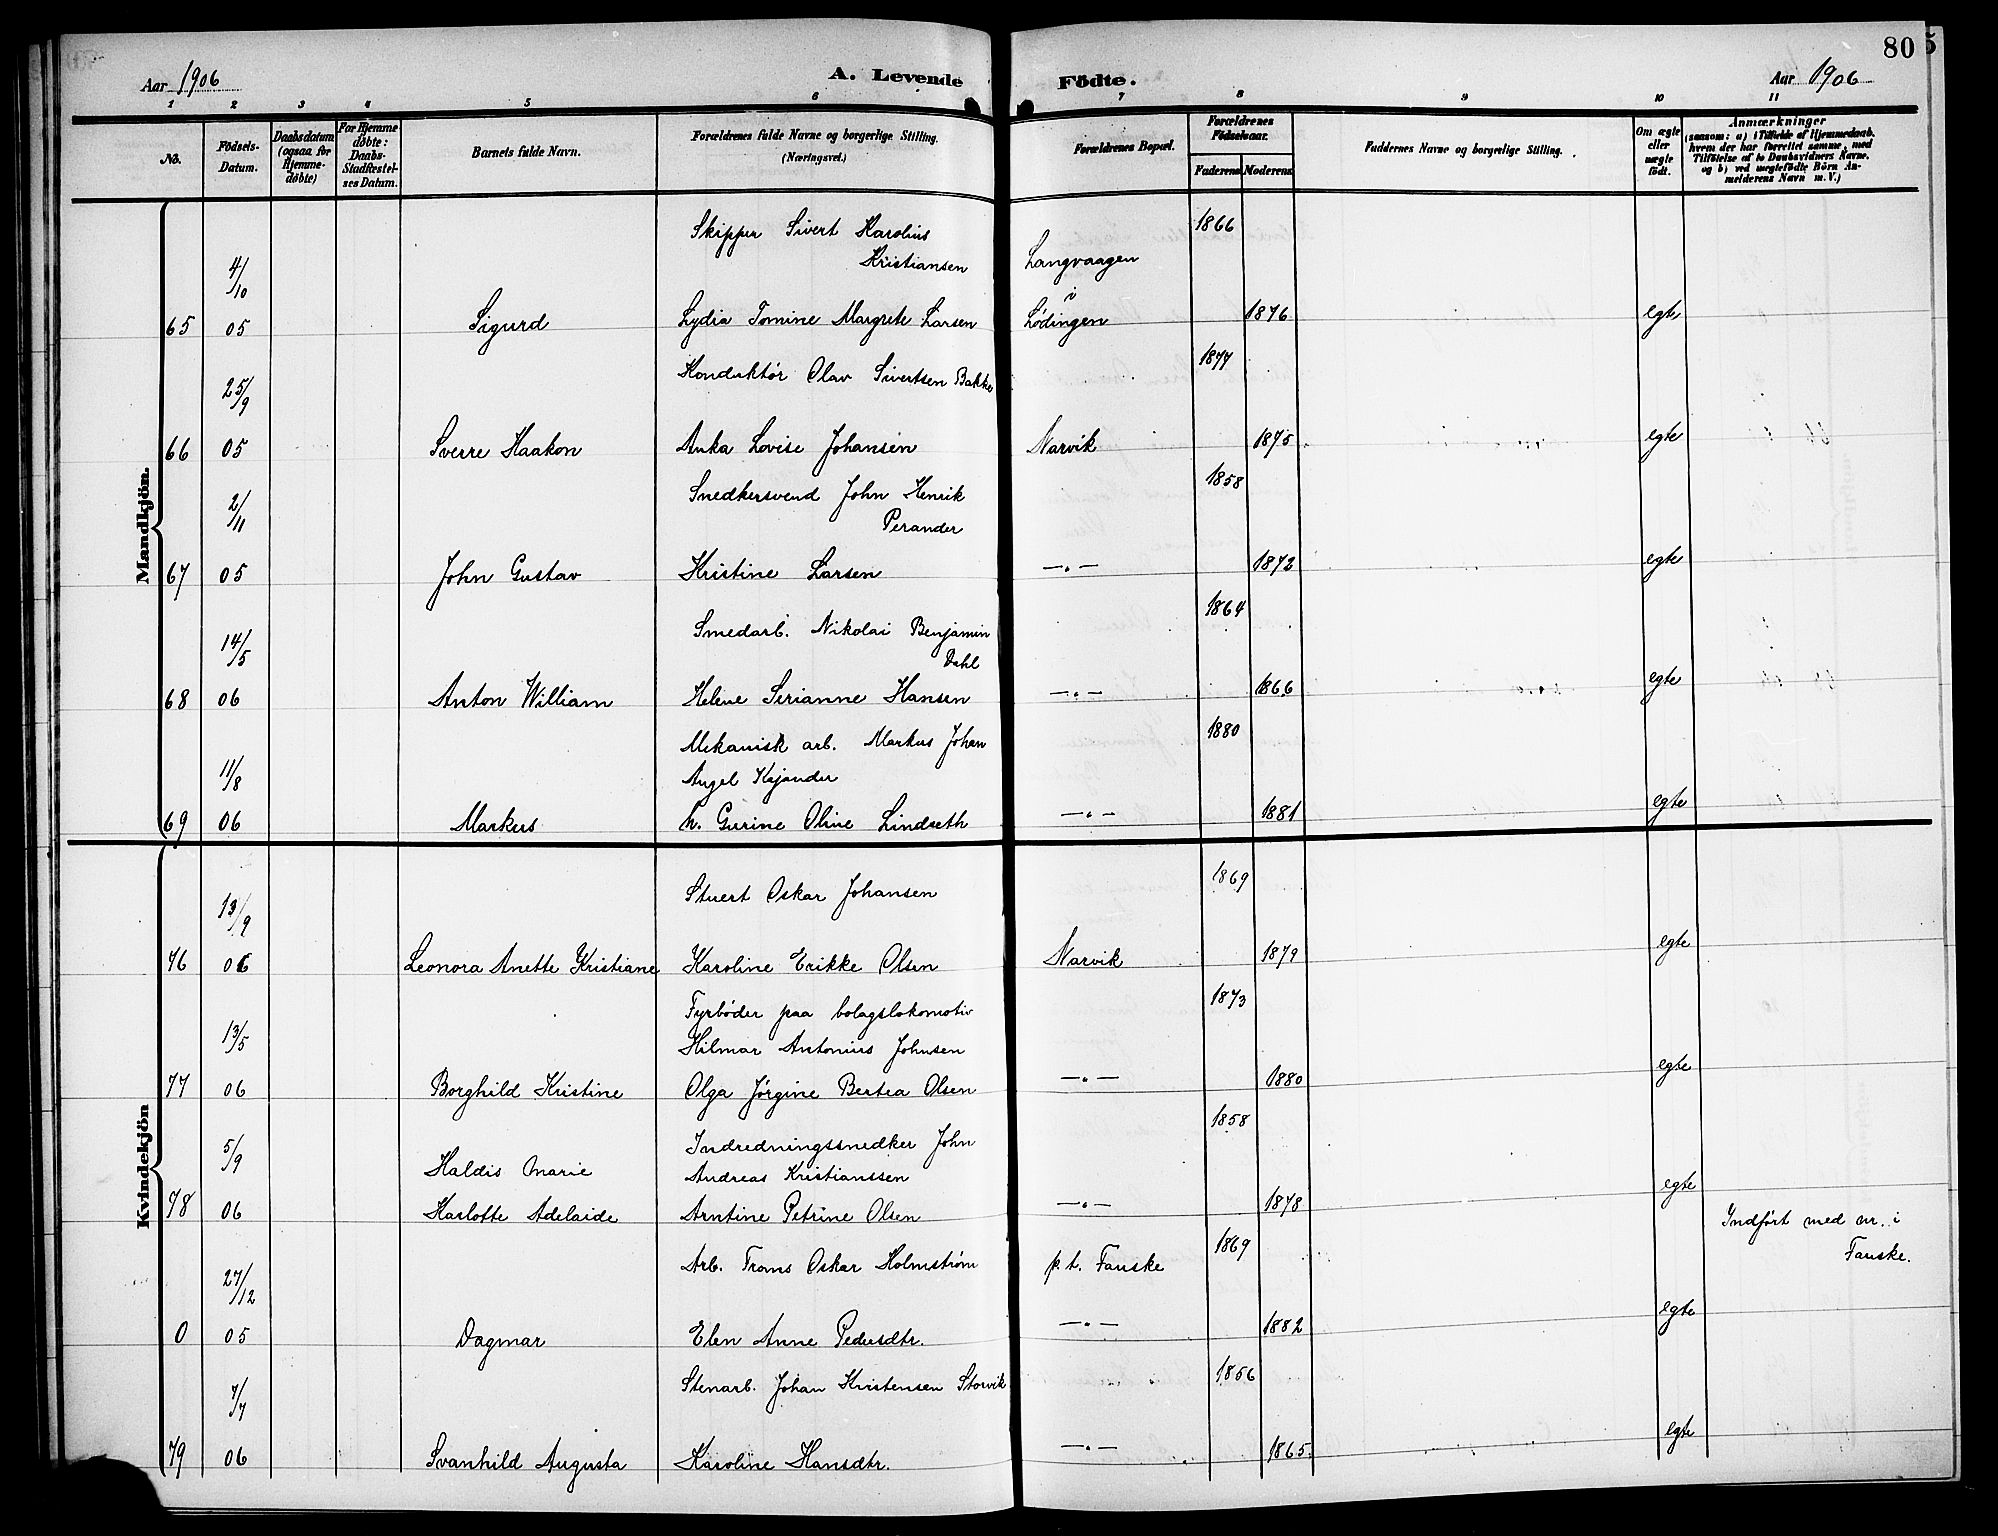 80
5
Aar 1906
A. Levende
Födte.
Aar 1906
1 2 3 4 5 6 7 8 9 10 11
No.
Födsels-
Datum.
Daabsdatum
(ogsaa for
Hjemme-
döbte)
For Hjemme
döbte:
Daabs-
Stadfæstel-
ses Datum.
Barnets fulde Navn.
Forældrenes fulde Navne og borgerlige Stilling.
(Næringsvei.)
Forældrenes Bopæl.
Forældrenes
Födselsaar.
Faderens
Moderens
Faddernes Navne og borgerlige Stilling.
Om ægte
eller
uægte
födt.
Anmærkninger
(saasom: a) i Tilfælde af Hjemmedaab.
hvem der har forrettet samme, med
Tilföielse af to Daabsvidners Navne.
og b) ved uægtefödte Börn An-
melderens Navn m. V.)
Mandkjön.
Skipper Sivert Karolius 1866
4/10 Kristiansen Langvaagen
i
65 05 Sigurd Lydia Tomine Margrete Larsen Lødingen 1876 egte
Konduktør Olav Sivertsen Bakke 1877
25/9
66 05 Sverre Haakon Anka Lovise Johansen Narvik 1875 egte
Snedkersvend John Henrik 1858
2/11 Perander
67 05 John Gustav Kristine Larsen —"— 1872 egte
Smedarb. Nikolai Benjamin 1864
14/5 Dahl
68 06 Anton William Helene Serianne Hansen —"— 1866 egte
Mekanisk arb. Markus Johan 1880
11/8 Angel Kajander
69 06 Markus h. Gurine Oline Lindseth —"— 1881 egte
Kvindekjön
Stuert Oskar Johansen 1869
13/9
76 06 Leonora Anette Kristiane Karoline Erikke Olsen Narvik 1879 egte
Fyrbøder paa bolagslokomotiv 1873
13/5 Hilmar Antonius Johnsen
77 06 Borghild Kristine Olga Jørgine Bertea Olsen —"— 1880 egte
Indredningssnedker John 1858
5/9 Haldis Marie Andreas Kristianssen
78 06 Karlotte Adelaide Arntine Petrine Olsen —"— 1878 egte
Indført med nr. i
Fauske.
Arb. Frans Oskar Holmstrøm p.t. Fauske 1869
27/12
0 05 Dagmar Elen Anne Pedersdtr. —"— 1882 egte
Stenarb. Johan Kristensen Storvik 1856
7/7
79 06 Svanhild Augusta Karoline Hansdtr. —"— 1865. egte